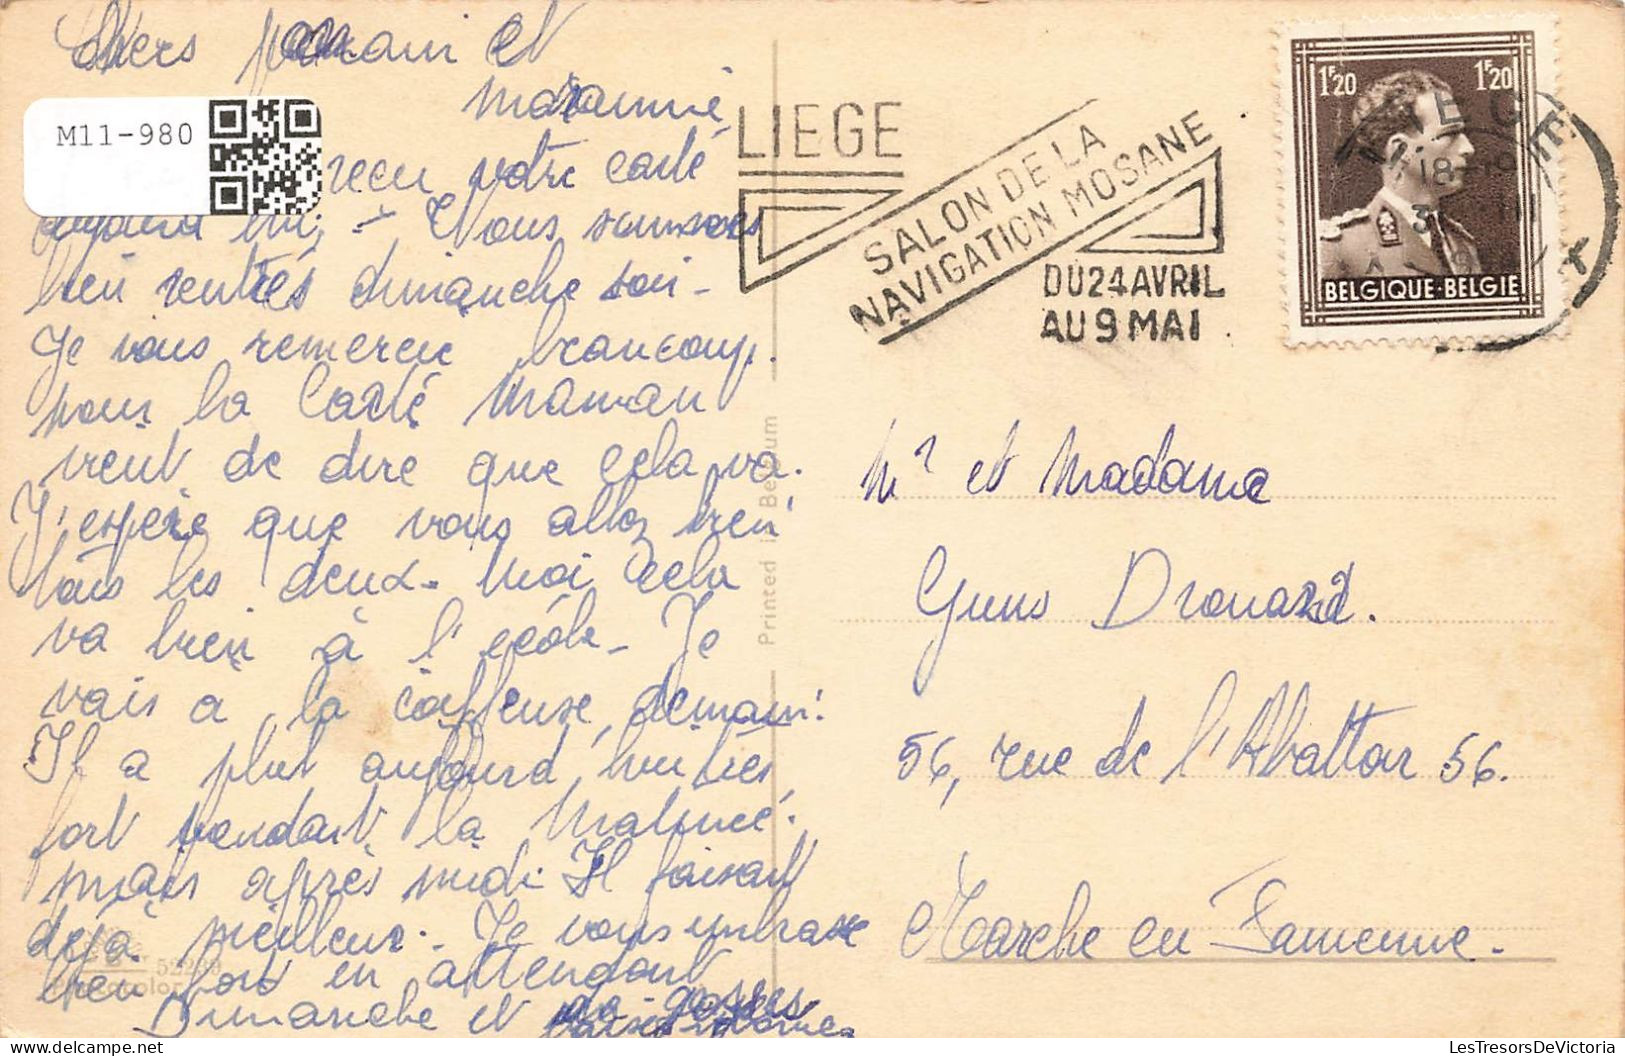 Chers parrain et
marainne,
M11-980
reçu votre carte
aujourd'hui, - Nous sommes
bien rentrés dimanche soir -
Je vous remercie beaucoup.
pour la Carte Maman
vient de dire que cela va.
J'espère que vous allez bien
tous les deux - Moi cela
va bien à l'école - Je
vais a la coiffeuse, demain.
Il a plut aujourd'hui tres
fort pendant la Matinée.
mais après midi Il faisait
déjà meilleur. Je vous embrasse
bien fort en attendant
Dimanche et
52289
Photocolor
Printed in Belgium
LIEGE
SALON DE LA
NAVIGATION MOSANE
DU 24 AVRIL
AU 9 MAI
1F20 1F20
BELGIQUE-BELGIE
LIEGE
18-19
Mr et Madame
Guns Drouard.
56, rue de l'Abattoir 56.
Marche en Famenne -
LesTresorsDeVictoria